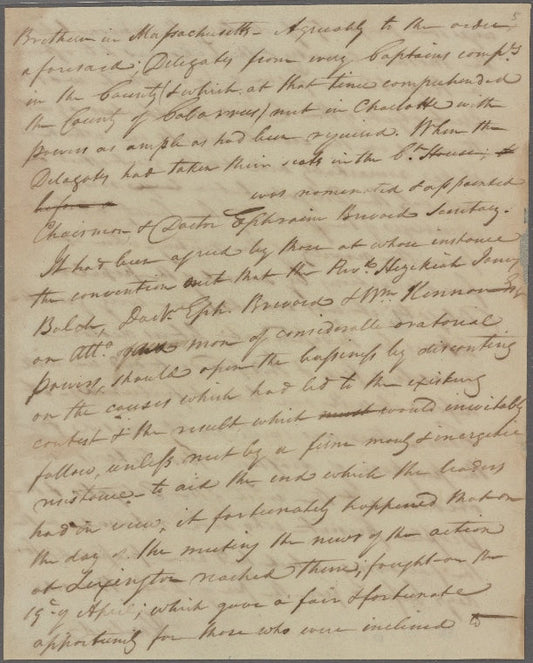 5
Brethren in Massachusetts – Agreeably to the order
aforesaid; Delegates from every Captains compy.
in the County (& which at that time comprehended
the County of Cabarrus) met in Charlotte with
powers as ample as had been required. When the
Delagates had taken their seats in the Ct. House,
before a was nominated & appointed
Chairman & Doctor Ephraim Brevard Secretary.
It had been agreed by those at whose instance
the convention met that the Revd. Hezekiah James
Balch, Doctr. Eph. Brevard & Wm. Kennon
an Atto. men of considerable oratorial
powers, should open the bussiness by discanting
on the causes which had led to the existing
contest & the result which must would inevitably
follow, unless met by a firm manly & inergetic
resistance – to aid the end which the leaders
had in view, it fortunately happened that on
the day of the meeting the news of the action
at Lexington reached there, fought on the
19th of April; which gave a fair & fortunate
opportunity for those who were inclined to